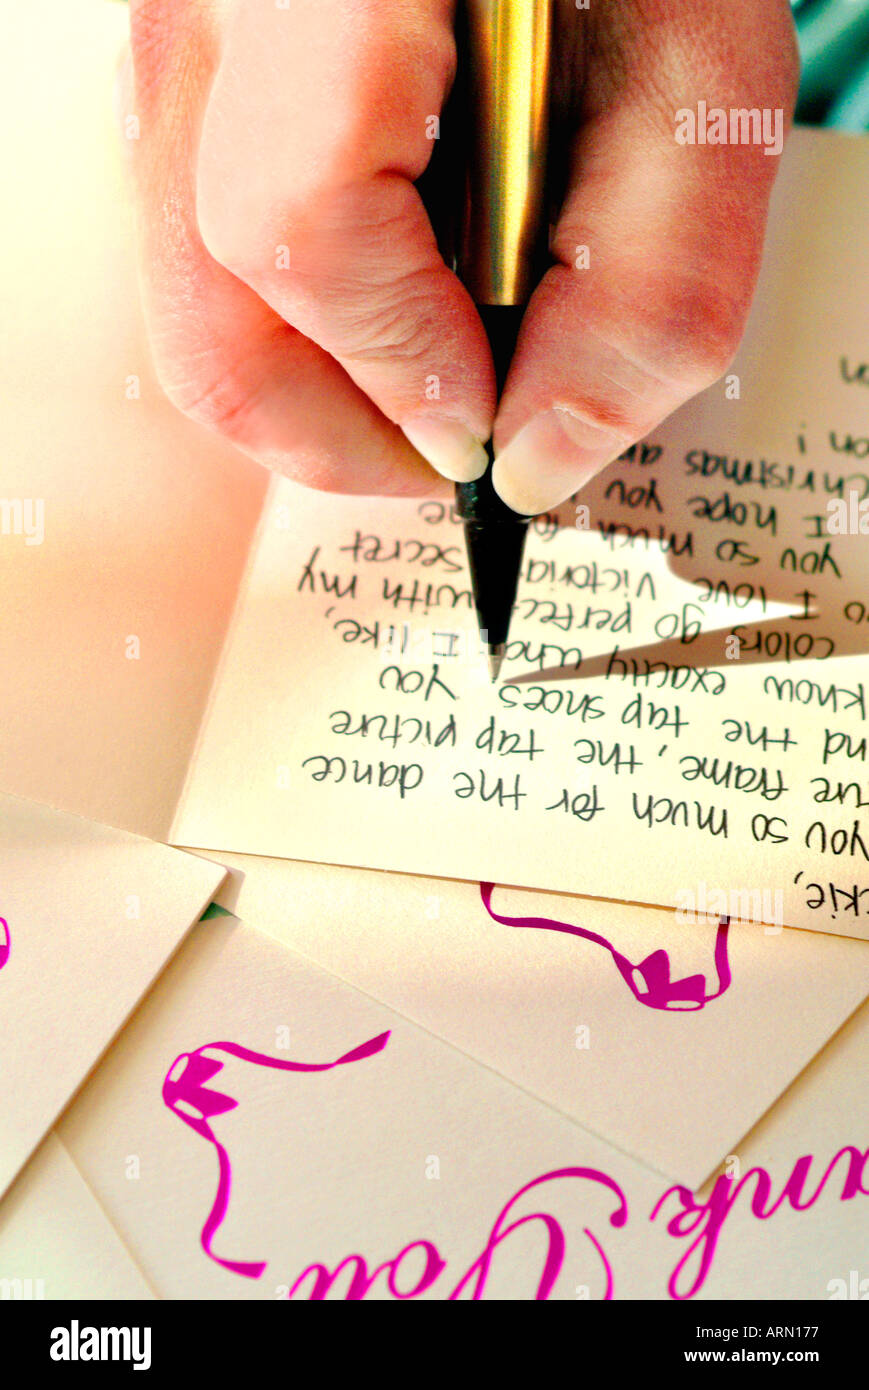 ckie,
you so much for the dance
ure frame, the tap picture
nd the tap shoes You
know exactly what I like,
colors go perfect with my
I love Victoria's Secret
you so much for me
I hope you
christmas an
on i
on
ank You
alamy
Image ID: ARN177
www.alamy.com